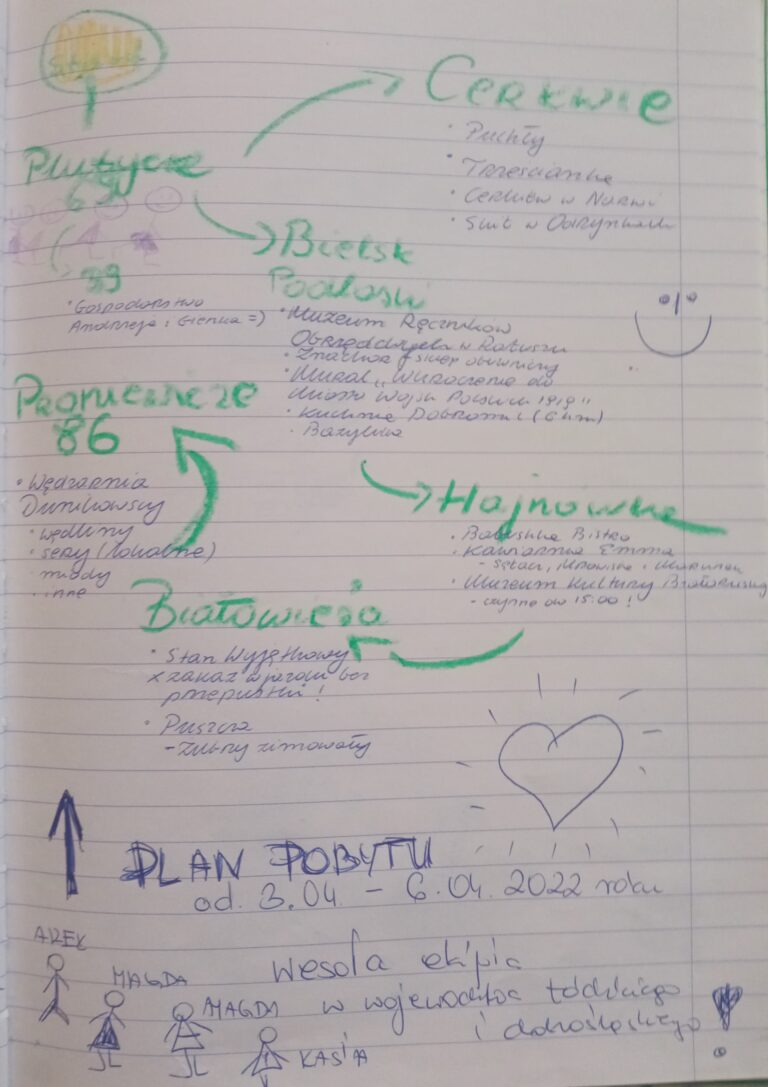 START
Plutycze
69
39
• Gospodarstwo
Andrzeja i Gienka =)
Cerkwie
• Puchły
• Trześcianka
• Cerkiew w Narwi
• Skit w Odrynkach
Bielsk
Podlaski
• Muzeum Ręczników
Obrzędowych w Ratuszu
• Znachor sklep obuwniczy
• Mural „Wkroczenie do
miasta Wojsk Polskich 1919"
• Kuchnia Dobromil (6 km)
• Bazylika
Proniewicze
86
• Wędzarnia
Dunikowscy
• wędliny
• sery (lokalne)
• miody
• inne
Hajnówka
• Babushka Bistro
• Kawiarnia Emma
- Sękacz, Mrowisko i Marcinek
• Muzeum Kultury Białoruskiej
- czynne do 15:00!
Białowieża
• Stan Wyjątkowy
x zakaz wjazdu bez
przepustki!
• Puszcza
- żubry zimowały
PLAN POBYTU
od 3.04 - 6.04.2022 roku
AREK
MAGDA
MAGDA
KASIA
Wesoła ekipa
w województwa łódzkiego
i dolnośląskiego
!